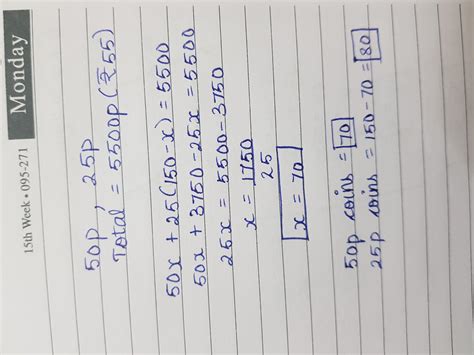 Monday
15th Week • 095-271
50p , 25p
Total = 5500p (₹55)
50x + 25(150-x) = 5500
50x + 3750 - 25x = 5500
25x = 5500 - 3750
x = 1750
25
x = 70
50p coins = 70
25p coins = 150 - 70 = 80